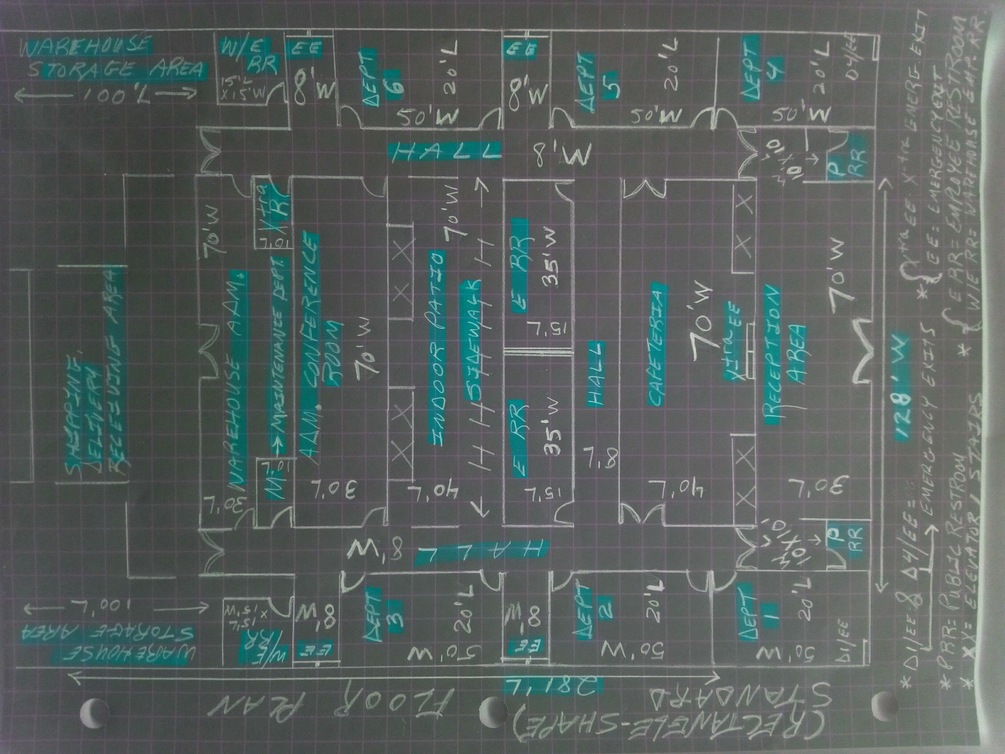 WAREHOUSE
STORAGE AREA
100'L
W/E
RR
15'L
X15'W
EE
8'W
DEPT
6
20'L
50'W
EE
8'W
DEPT
5
20'L
50'W
DEPT
4
20'L
50'W
D4/EE
HALL
8'W
10'L
X
10'
P
RR
SHIPPING,
DELIVERY
RECEIVING AREA
70'W
WAREHOUSE A.M.
30'L
Xtra
R
10'L
→ MAINTENANCE DEPT.
M.
10'L
A.M. CONFERENCE
ROOM
70'W
30'L
INDOOR PATIO
70'W
40'L
SIDEWALK
E RR
35'W
15'L
E RR
35'W
15'L
HALL
8'L
CAFETERIA
70'W
40'L
X X
X X
X X
X X
Xtra EE
RECEPTION
AREA
70'W
30'L
HALL
8'W
10'L
X
10'
P
RR
WAREHOUSE
STORAGE AREA
100'L
W/E
RR
15'L
X15'W
EE
8'W
DEPT
3
20'L
50'W
EE
8'W
DEPT
2
20'L
50'W
DEPT
1
20'L
50'W
D1/EE
281'L
128'W
FLOOR PLAN
(RECTANGLE-SHAPE)
STANDARD
* D1/EE & D4/EE =
EMERGENCY EXITS
* { Xtra EE = X'tra EMERG. EXIT
{ EE = EMERGENCY EXIT
* PRR = PUBLIC RESTROOM
* { E RR = EMPLOYEE RESTROOM
* XX = ELEVATOR / STAIRS
* W/E RR = WAREHOUSE EMP. RR